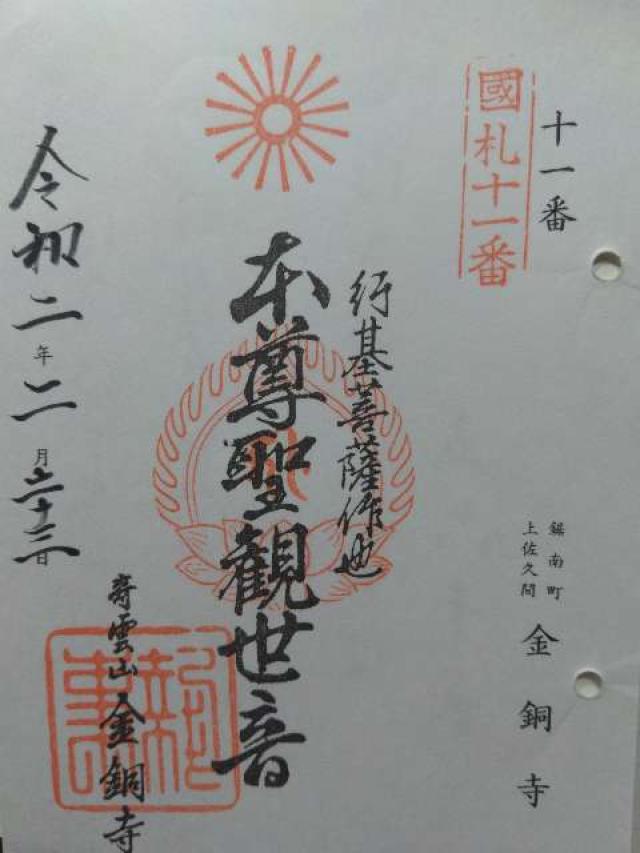 十一番
國札十一番
鋸南町
上佐久間
金銅寺
行基菩薩作也
本尊聖観世音
雲山金銅寺
令和二年二月二十三日